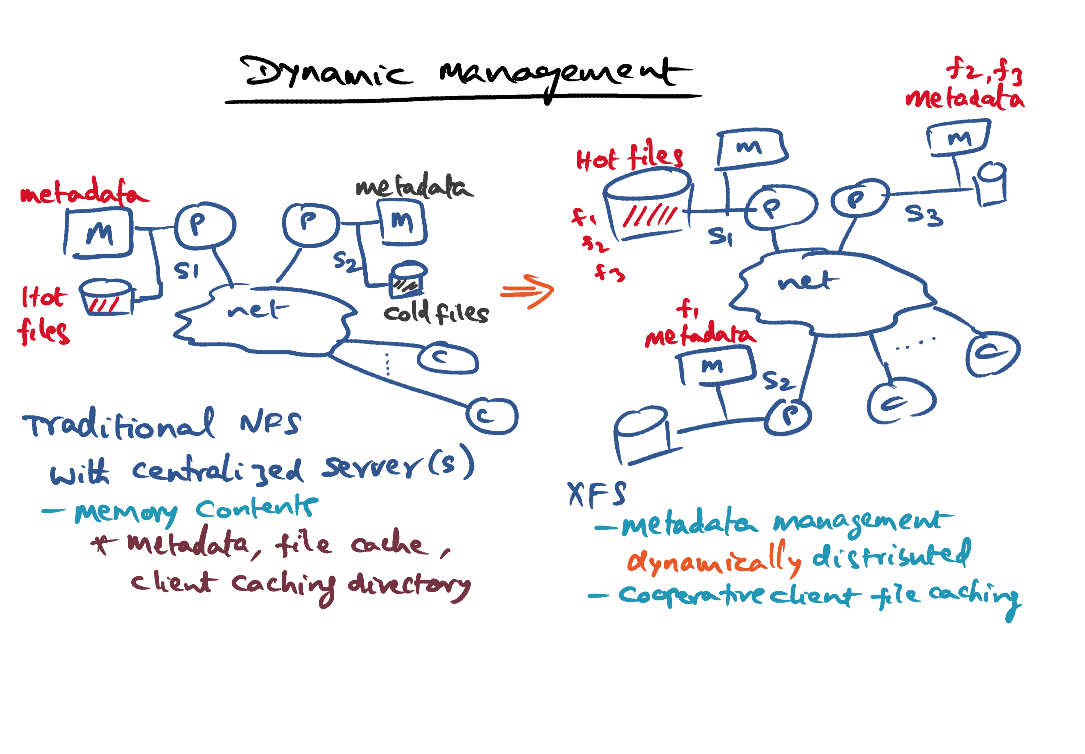 Dynamic Management
metadata
M
P
S1
Hot
files
P
metadata
M
S2
cold files
net
C
C
Traditional NFS
with centralized server(s)
- Memory contents
* metadata, file cache,
client caching directory
Hot files
f1
s2
f3
M
P
S1
f2, f3
metadata
M
P
S3
net
f1
metadata
M
S2
P
....
C
C
XFS
- metadata management
dynamically distributed
- cooperative client file caching